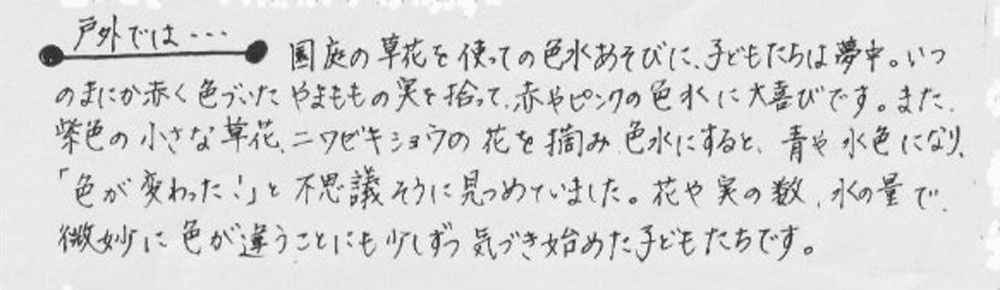 戸外では…
園庭の草花を使っての色水あそびに、子どもたちは夢中。いつ
のまにか赤く色づいたやまももの実を拾って、赤やピンクの色水に大喜びです。また、
紫色の小さな草花、ニワゼキショウの花を摘み色水にすると、青や水色になり、
「色が変わった!」と不思議そうに見つめていました。花や実の数、水の量で、
微妙に色が違うことにも少しずつ気づき始めた子どもたちです。